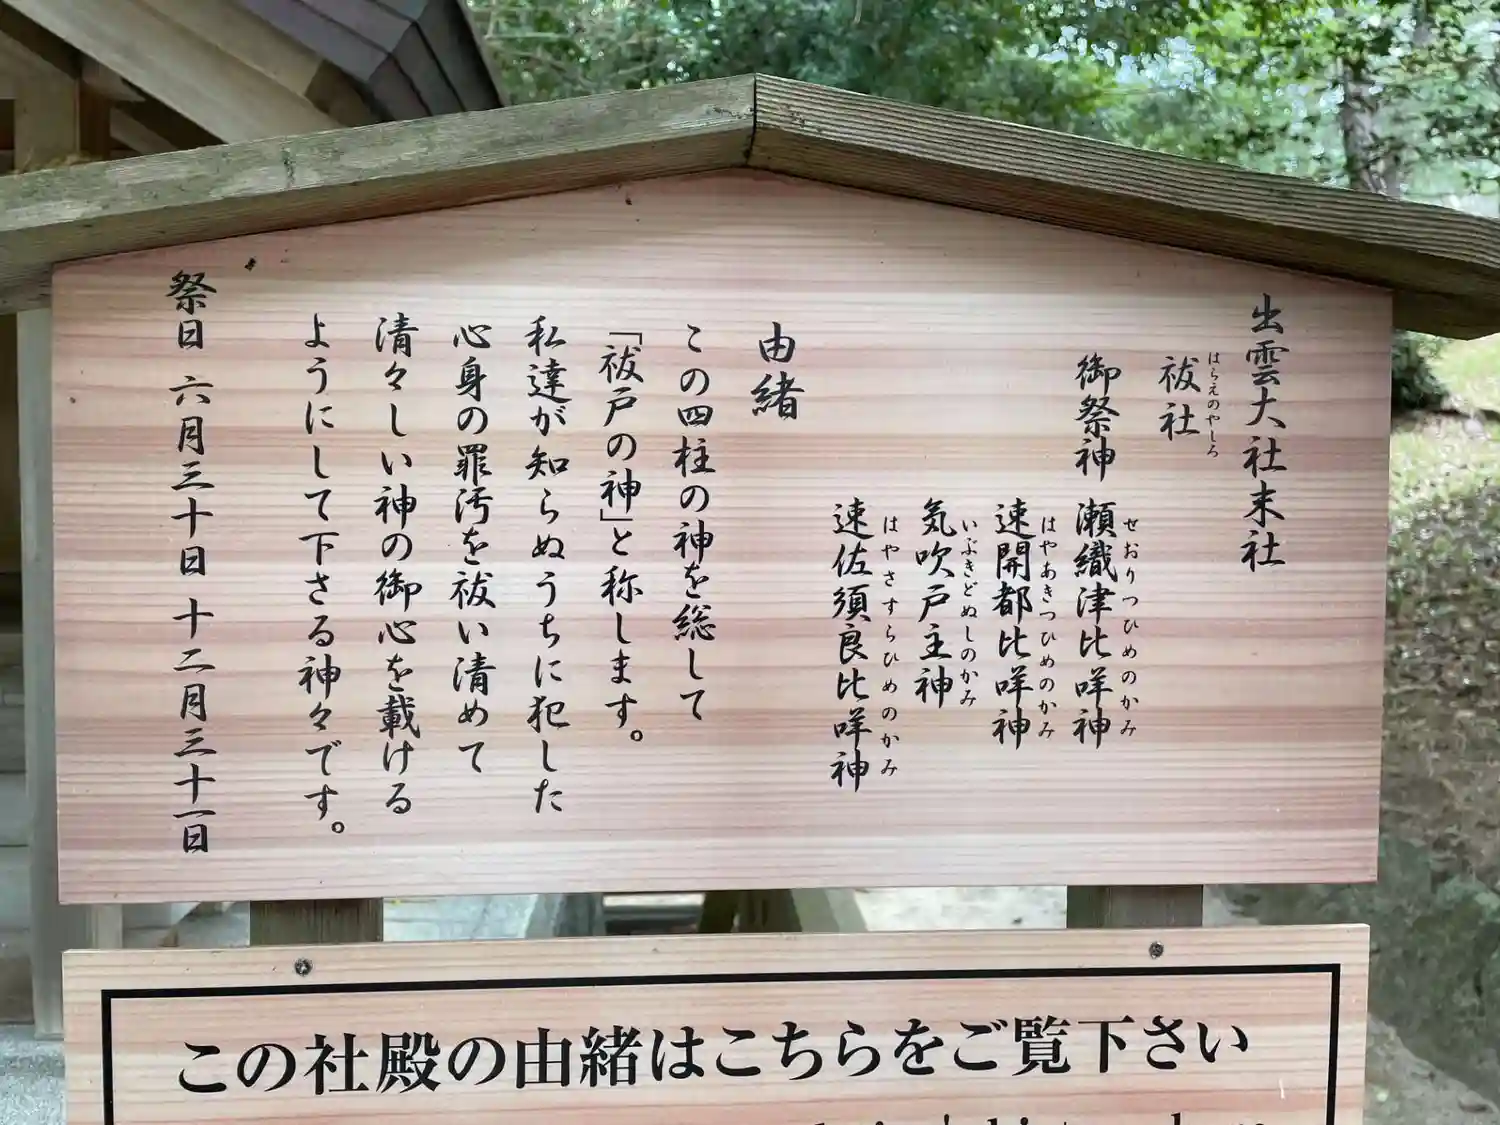 出雲大社末社
はらえのやしろ
祓社
御祭神 瀬織津比咩神
せおりつひめのかみ
速開都比咩神
はやあきつひめのかみ
気吹戸主神
いぶきどぬしのかみ
速佐須良比咩神
はやさすらひめのかみ
由緒
この四柱の神を総して
「祓戸の神」と称します。
私達が知らぬうちに犯した
心身の罪汚を祓い清めて
清々しい神の御心を載ける
ようにして下さる神々です。
祭日 六月三十日 十二月三十一日
この社殿の由緒はこちらをご覧下さい